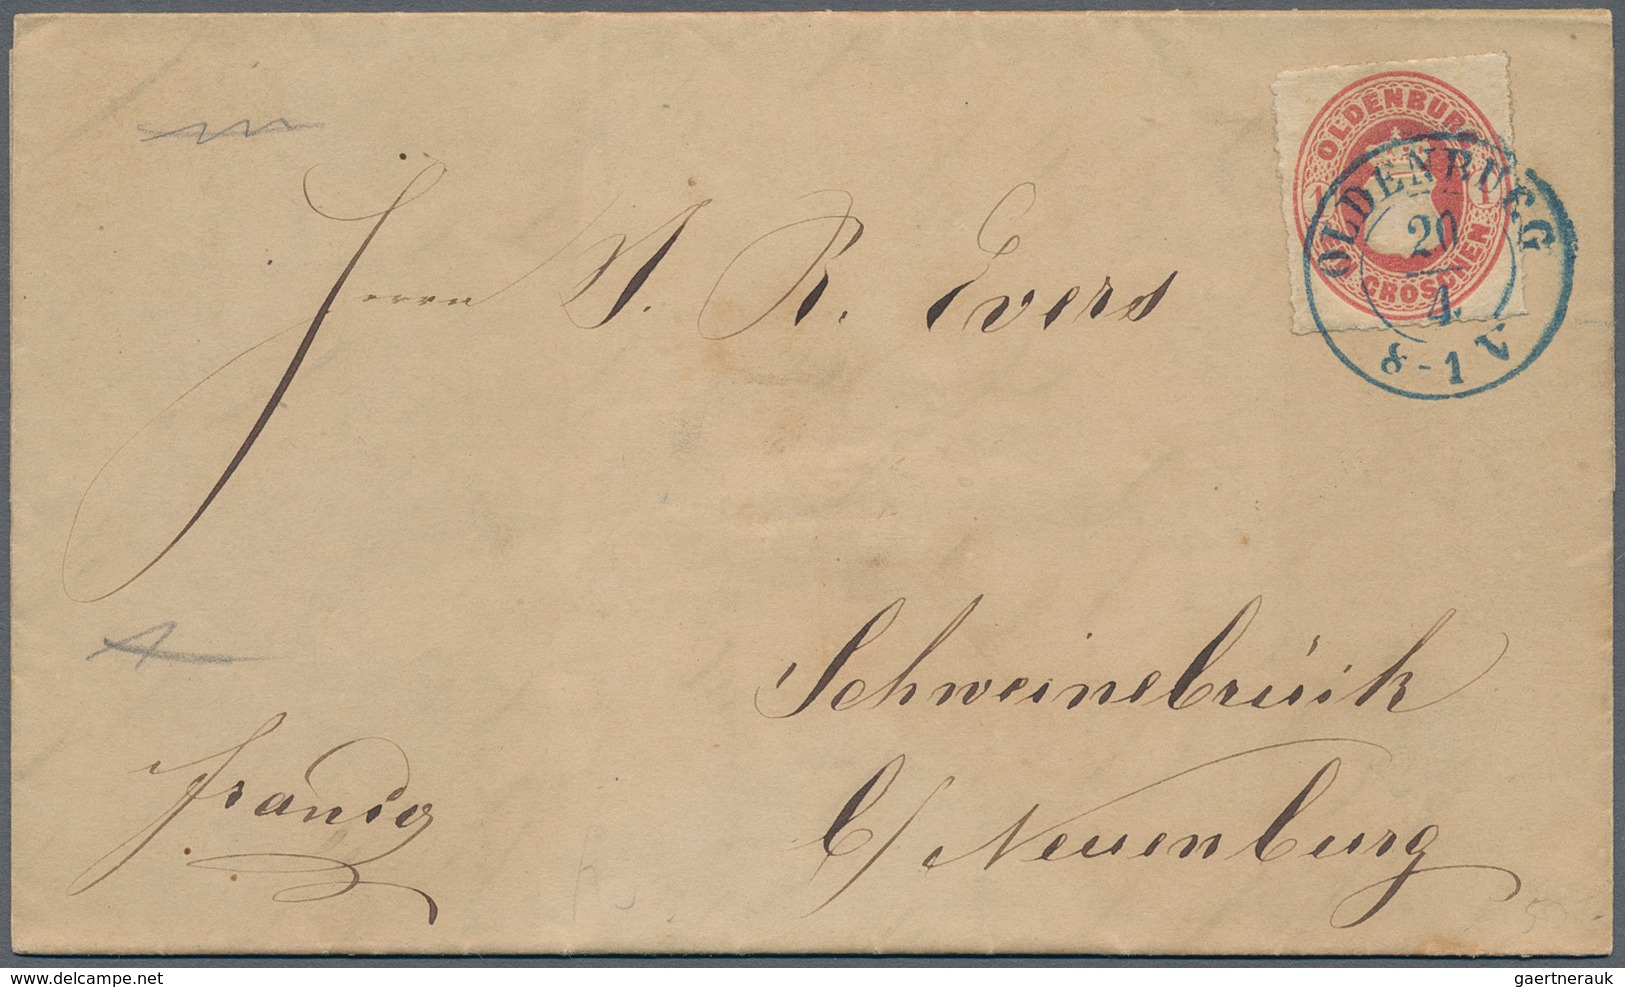 OLDENBURG
1 1
GROSCHEN
OLDENBURG
20
4
8-1 V
Herrn W. R. Evers
Schweinebrück
b/ Neuenburg
franco
www.delcampe.net
gaertnerauk